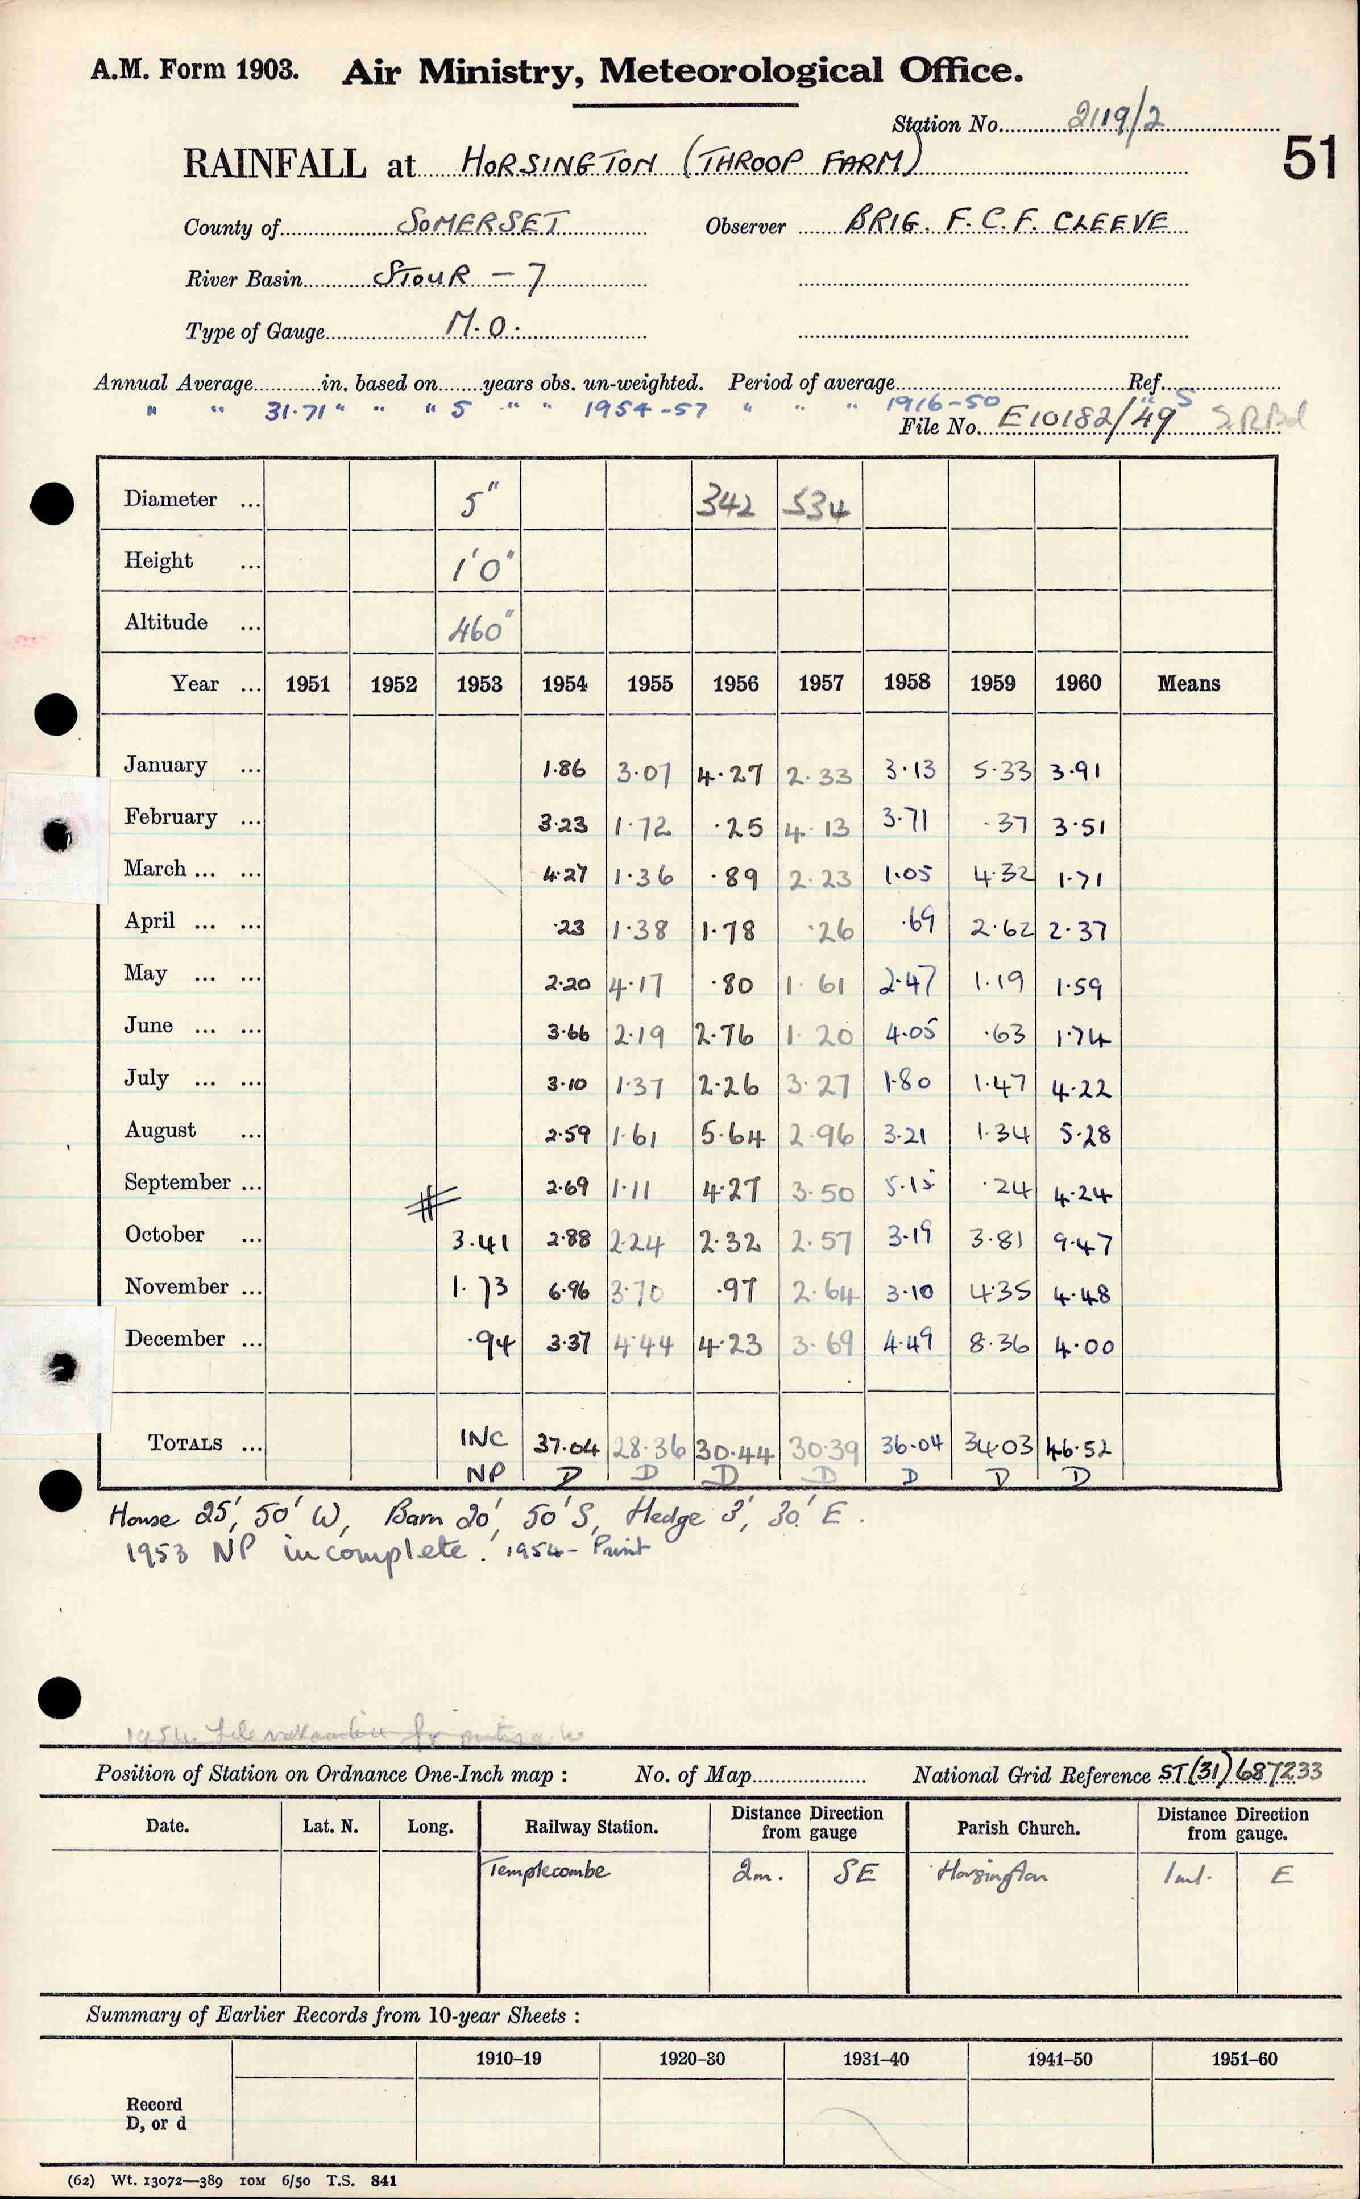 A.M. Form 1903. Air Ministry, Meteorological Office.
Station No. 2119/2
51
RAINFALL at HORSINGTON (THROOP FARM)
County of SOMERSET Observer BRIG. F.C.F. CLEEVE
River Basin STOUR - 7
Type of Gauge M.O.
Annual Average in. based on years obs. un-weighted. Period of average Ref.
" " 31.71 " " " 5 " " 1954-57 " " " 1916-50 " 5
File No. E10182/49
Diameter ... 5" 342 534
Height ... 1'0"
Altitude ... 460"
Year ... 1951 1952 1953 1954 1955 1956 1957 1958 1959 1960 Means
January ... 1.86 3.07 4.27 2.33 3.13 5.33 3.91
February ... 3.23 1.72 .25 4.13 3.71 .37 3.51
March ... ... 4.27 1.36 .89 2.23 1.05 4.32 1.71
April ... ... .23 1.38 1.78 .26 .69 2.62 2.37
May ... ... 2.20 4.17 .80 1.61 2.47 1.19 1.59
June ... ... 3.66 2.19 2.76 1.20 4.05 .63 1.74
July ... ... 3.10 1.37 2.26 3.27 1.80 1.47 4.22
August ... 2.59 1.61 5.64 2.96 3.21 1.34 5.28
September ... 2.69 1.11 4.27 3.50 5.15 .24 4.24
October ... 3.41 2.88 2.24 2.32 2.57 3.19 3.81 9.47
November ... 1.73 6.96 3.70 .97 2.64 3.10 4.35 4.48
December ... .94 3.37 4.44 4.23 3.69 4.49 8.36 4.00
TOTALS ... INC 37.04 28.36 30.44 30.39 36.04 34.03 46.52
NP D D D D D D D
House 25', 50' W, Barn 20', 50' S, Hedge 3', 30' E.
1953 NP incomplete. 1954- Print
1954
Position of Station on Ordnance One-Inch map : No. of Map National Grid Reference ST(31)687233
Date. Lat. N. Long. Railway Station. Distance Direction from gauge Parish Church. Distance Direction from gauge.
Templecombe 2m. SE Horsington 1ml. E
Summary of Earlier Records from 10-year Sheets :
1910–19 1920–30 1931–40 1941–50 1951–60
Record
D, or d
(62) Wt. 13072—389 10M 6/50 T.S. 841